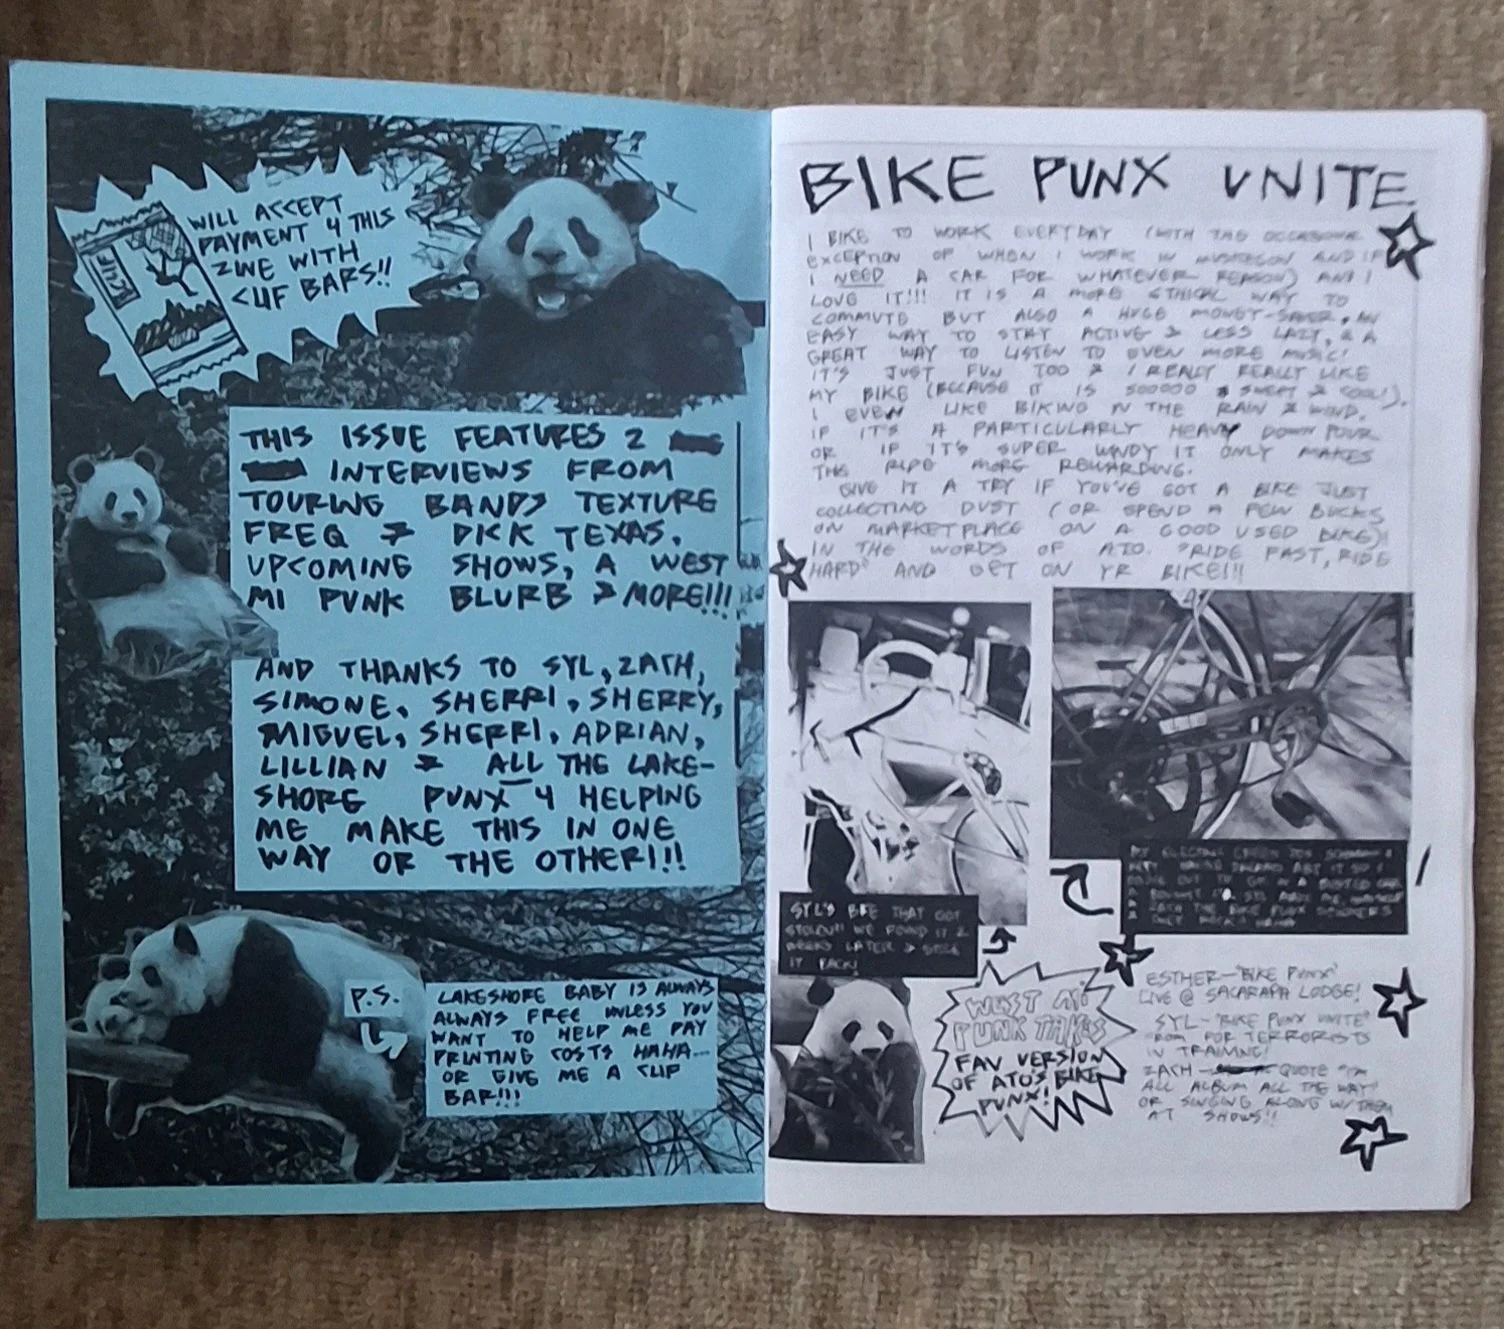 WILL ACCEPT
PAYMENT 4 THIS
ZINE WITH
CLIF BARS!!
CLIF
THIS ISSUE FEATURES 2
INTERVIEWS FROM
TOURING BANDS TEXTURE
FREQ & DICK TEXAS.
UPCOMING SHOWS, A WEST
MI PUNK BLURB & MORE!!!
AND THANKS TO SYL, ZACH,
SIMONE, SHERRI, SHERRY,
MIGUEL, SHERRI, ADRIAN,
LILLIAN & ALL THE LAKE-
SHORE PUNX 4 HELPING
ME MAKE THIS IN ONE
WAY OR THE OTHER!!!
P.S.
LAKESHORE BABY IS ALWAYS
ALWAYS FREE UNLESS YOU
WANT TO HELP ME PAY
PRINTING COSTS HAHA...
OR GIVE ME A CLIF
BAR!!!
BIKE PUNX UNITE
I BIKE TO WORK EVERYDAY (WITH THE OCCASIONAL
EXCEPTION OF WHEN I WORK IN MUSKEGON AND IF
I NEED A CAR FOR WHATEVER REASON) AND I
LOVE IT!!! IT IS A MORE ETHICAL WAY TO
COMMUTE BUT ALSO A HUGE MONEY-SAVER, AN
EASY WAY TO STAY ACTIVE & LESS LAZY, & A
GREAT WAY TO LISTEN TO EVEN MORE MUSIC!
IT'S JUST FUN TOO & I REALLY REALLY LIKE
MY BIKE (BECAUSE IT IS SOOOOO SWEET & COOL!).
I EVEN LIKE BIKING IN THE RAIN & WIND,
IF IT'S A PARTICULARLY HEAVY DOWNPOUR
OR IF IT'S SUPER WINDY IT ONLY MAKES
THE RIDE MORE REWARDING.
GIVE IT A TRY IF YOU'VE GOT A BIKE JUST
COLLECTING DUST (OR SPEND A FEW BUCKS
ON MARKETPLACE ON A GOOD USED BIKE)!
IN THE WORDS OF ATO. "RIDE FAST, RIDE
HARD" AND GET ON YR BIKE!!!
SYL'S BIKE THAT GOT
STOLEN!! WE FOUND IT 2
WEEKS LATER & STOLE
IT BACK!
MY ELECTRIC GREEN
A BUSTED CAR
& ZACH THE BIKE PUNX
WEST MI
PUNK TAKES
FAV VERSION
OF ATO'S BIKE
PUNX!
ESTHER - "BIKE PUNX"
LIVE @ SACARAPA LODGE!
SYL - "BIKE PUNX UNITE"
FROM FOR TERRORISTS
IN TRAINING!
ZACH - QUOTE "I'M
ALL ALBUM ALL THE WAY!
OR SINGING ALONG W/ THEM
AT SHOWS!!